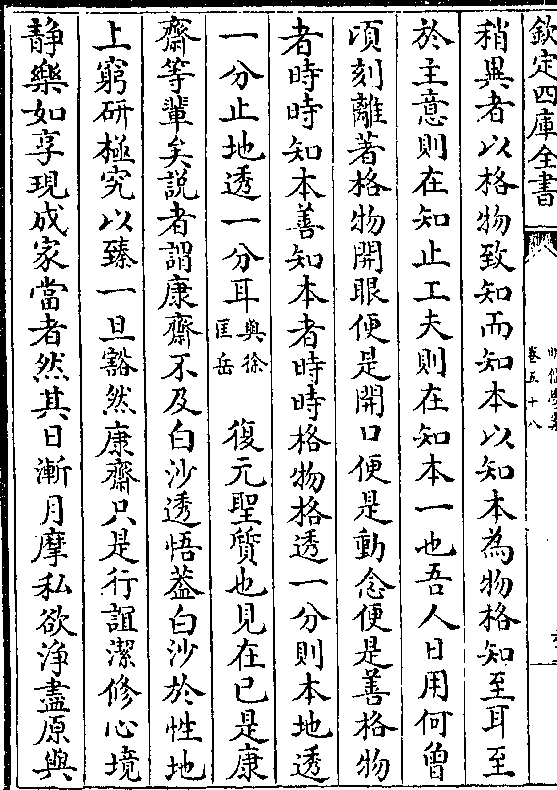 欽定四庫全書
明儒學案
卷五十八
稍異者以格物致知而知本以知本為物格知至耳至
於主意則在知止工夫則在知本一也吾人日用何曾
頃刻離著格物開眼便是開口便是動念便是善格物
者時時知本善知本者時時格物格透一分則本地透
一分止地透一分耳與徐匡岳　復元聖質也見在已是康
齋等輩矣説者謂康齋不及白沙透悟葢白沙於性地
上窮研極究以臻一旦豁然康齋只是行誼潔修心境
静樂如享現成家當者然其日漸月摩私欲浄盡原與